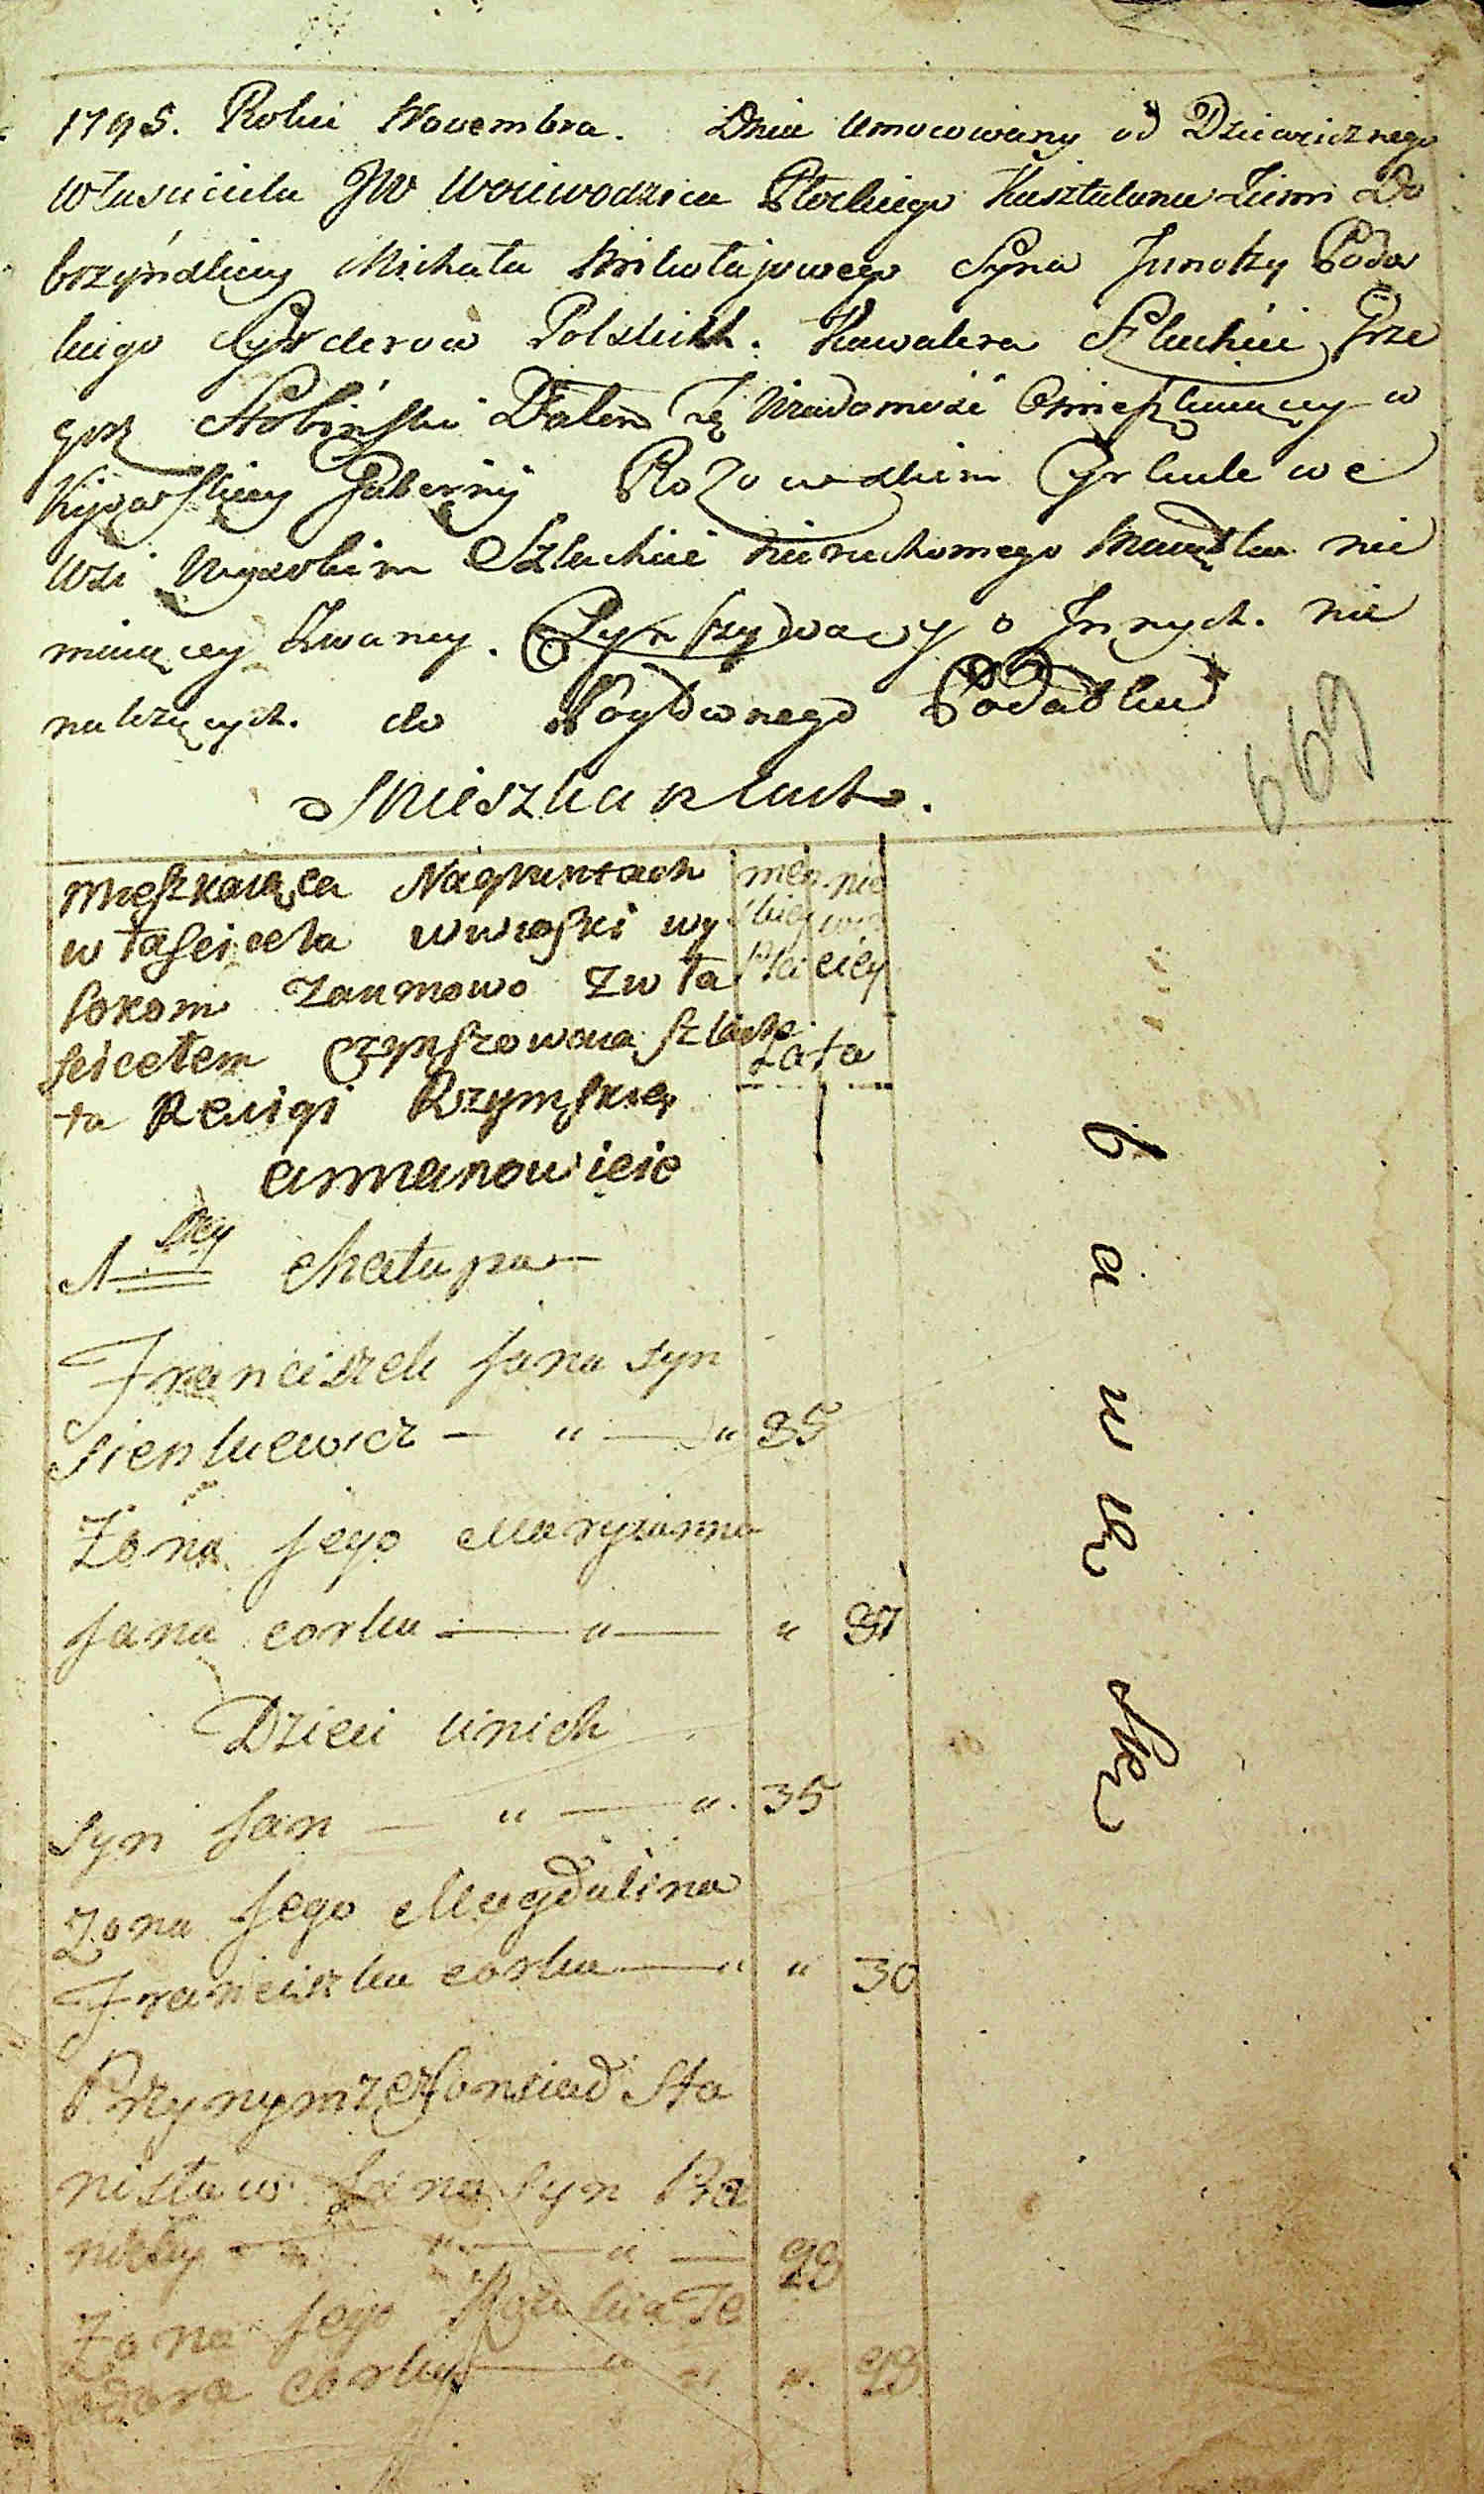 1795. Roku Novembra. Dnia Umocowany od Dziewicznego
Własciciela JW Woiewodzica Płockiego Kasztelana Ziemi Do
brzyńdkiey Michała Mikołajowego Syna Junoszy Podo
kiego Orderow Polskich. Kawalera Szlachic Grze
gorz Stobiński Dałem tę Wiadomość Omieszkaiący w
Kijowskiey Guberny Cyrkule we
Wsi Wysokim Szlachcie nieruchomego Maiątku nie
maiącey zwaney. Czynszydwacy o Innych. nie
nalezących. do Pogłownego Podatku
669
Mieszka Szlachta.
mieszkaiąca Nagruntach
własciciela wwioski wy
sokom zaumowo zwła
scicelem czynszowana szlach
ta Religi Rzymskiey
amianowicie
męs nie
skiey wie
Płci ciey
Lata
1szey Chałupa
Franciszek Jana syn
Sienkiewicz — " — " 85
Zona Jego Maryianna
Jana corka — " — " 87
Dzieci unich
syn Jan — " — ". 35
zona Jego Magdalina
Franciszka corka — " " 30
Przynym ze Sonsiad Sta
nisław Jana syn Ba
— " — " — 29
Zona Jego Te
odora corka — " " ". 28
b
a
n
ski